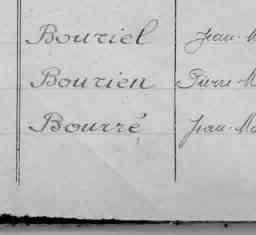 Bouriel Jean-M
Bourien Pierre-M
Bourré Jean-Ma